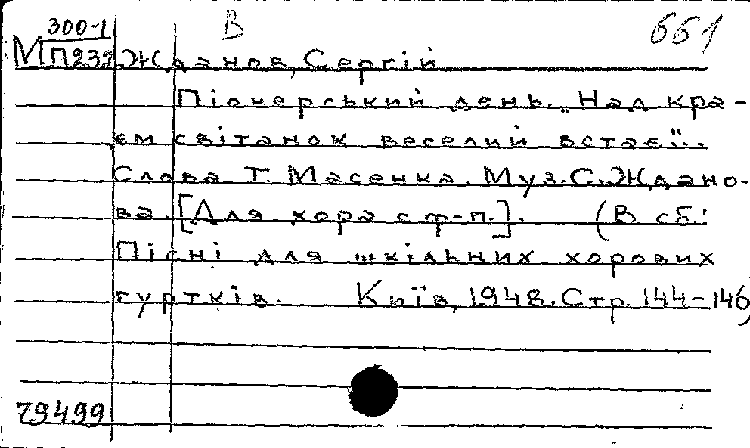 300-1 В 661
МП232 Жданов, Сергій
Піонерський день. „Над кра-
єм світанок веселий встає"..
Слова Т. Масенка. Муз. С. Ждано-
ва. [Для хора с ф-п.]. (В сб.:
Пісні для шкільних хорових
гуртків. Київ, 1948. Стр. 144-146)
79499